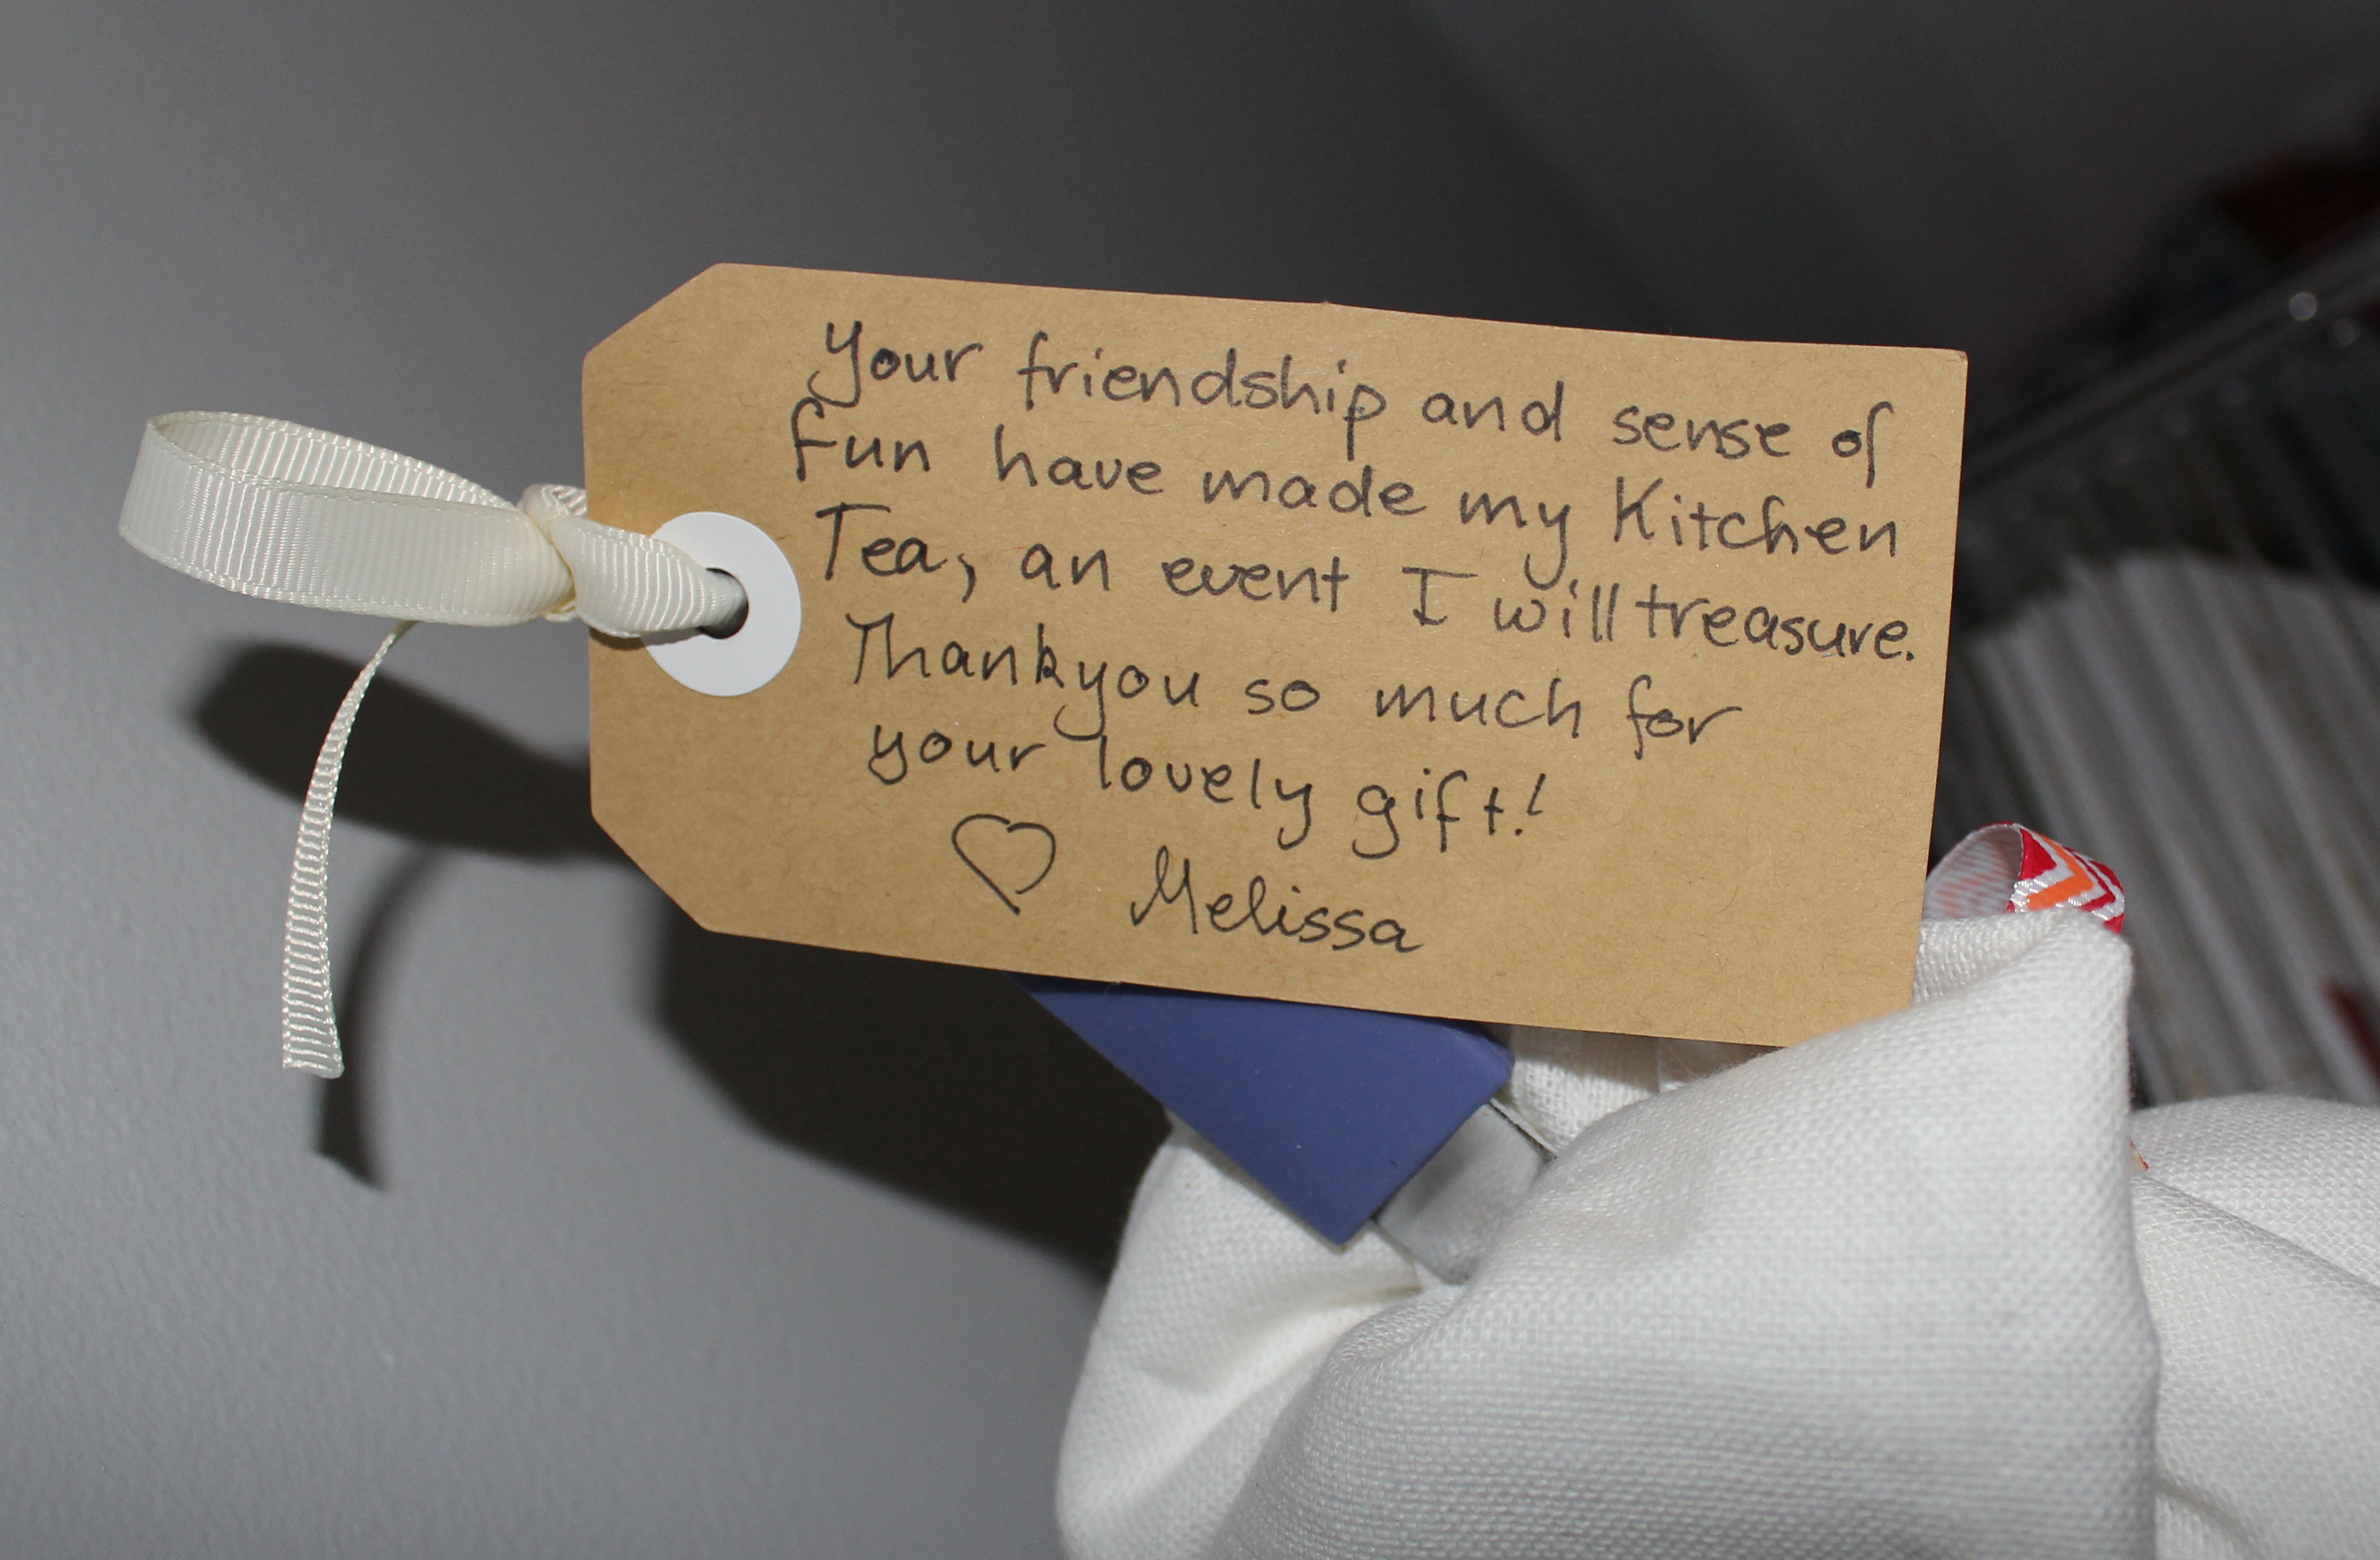 Your friendship and sense of
fun have made my Kitchen
Tea, an event I will treasure.
Thankyou so much for
your lovely gift!
♡ Melissa